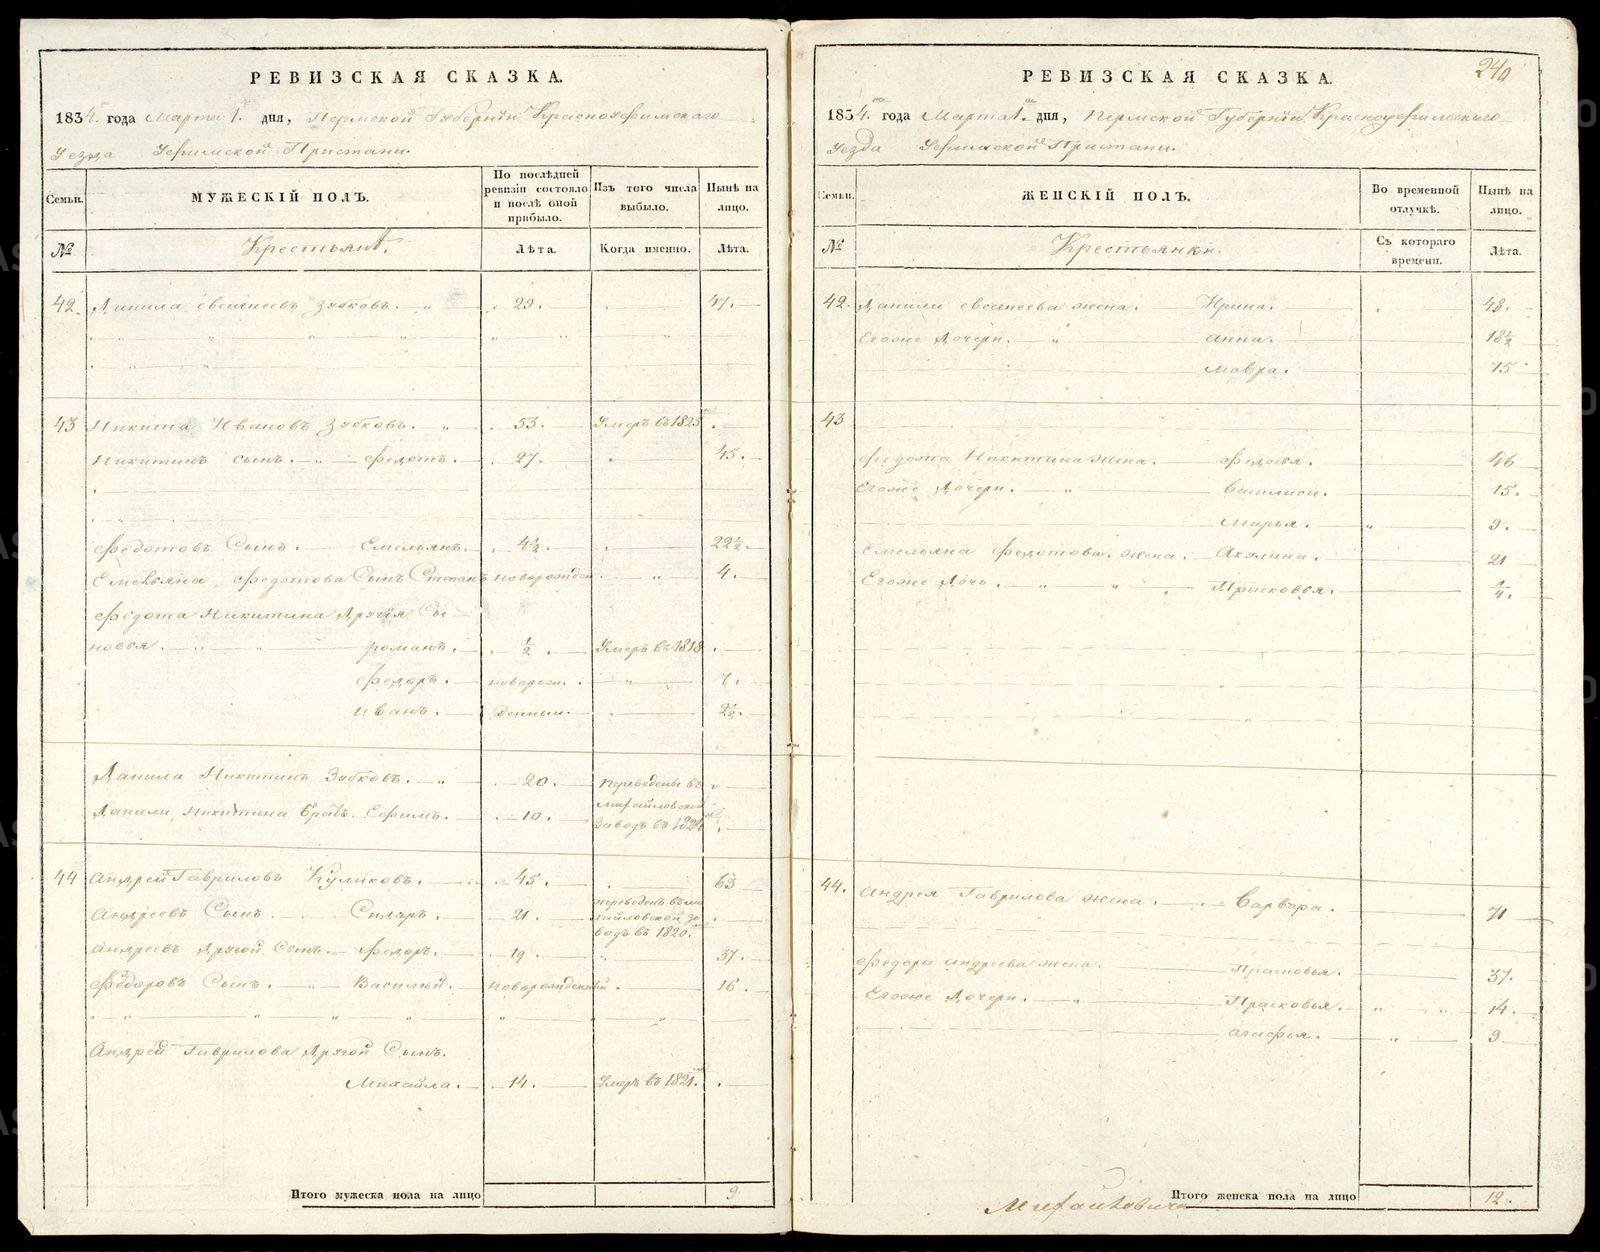 РЕВИЗСКАЯ СКАЗКА.
1834. года Марта 1. дня, Пермской Губерніи Красноуфимскаго
Уезда Уфимской Пристани.
Семьи.
МУЖЕСКІЙ ПОЛЪ.
По послѣдней ревизіи состояло и послѣ оной прибыло.
Изъ того числа выбыло.
Нынѣ на лицо.
№
Крестьянъ.
Лѣта.
Когда именно.
Лѣта.
42. Данила Евсигнеевъ Зубковъ. 29. 47.
43 Никита Ивановъ Зубковъ. 53. Умеръ въ 1825
Никитинъ сынъ. Федотъ. 27. 45.
Федотовъ Сынъ. Емельянъ. 4½. 22½.
Емельяна Федотова Сынъ Степанъ новорожден. 4.
Федота Никитина Другія Сы-
новья. романъ. ½. Умеръ въ 1818
Федоръ. новорож. 7.
Иванъ. денныи. 2½.
Данила Никитинъ Зубковъ. 20. Переведены въ
Михайловской
Данилы Никитина Братъ. Ефимъ. 10. Заводъ въ 1824.
44 Андрей Гавриловъ Куликовъ. 45. 63
Андреевъ Сынъ. Сидаръ. 21. переведенъ въ Ми
хайловской за
водъ въ 1820.
Андреевъ другой Сынъ. Федоръ. 19. 37.
Федоровъ Сынъ. Василий. Новорожденный. 16.
Андрей Гаврилова Другой Сынъ.
Михайла. 14. Умеръ въ 1821.
Итого мужеска пола на лицо 9
240
РЕВИЗСКАЯ СКАЗКА.
1834. года Марта 1. дня, Пермской Губерніи Красноуфимскаго
Уезда Уфимской Пристани.
Семьи.
ЖЕНСКІЙ ПОЛЪ.
Во временной отлучкѣ.
Нынѣ на лицо.
№
Крестьянки.
Съ котораго времени.
Лѣта.
42. Данилы Евсигнеева жена. Ирина. 48.
Егоже Дочери. Анна. 18½
Мавра. 15
43
Федота Никитина жена. Федосья. 46
Егоже Дочери. Василиса. 15.
Марья. 9.
Емельяна Федотова жена. Акулина. 21
Егоже Дочь. Прасковья.
44. Андрея Гаврилова жена. Варвара. 71
Федора Андреева жена. Прасковья. 37.
Егоже Дочери. Прасковья. 14.
Агафья. 9
Итого женска пола на лицо 12.